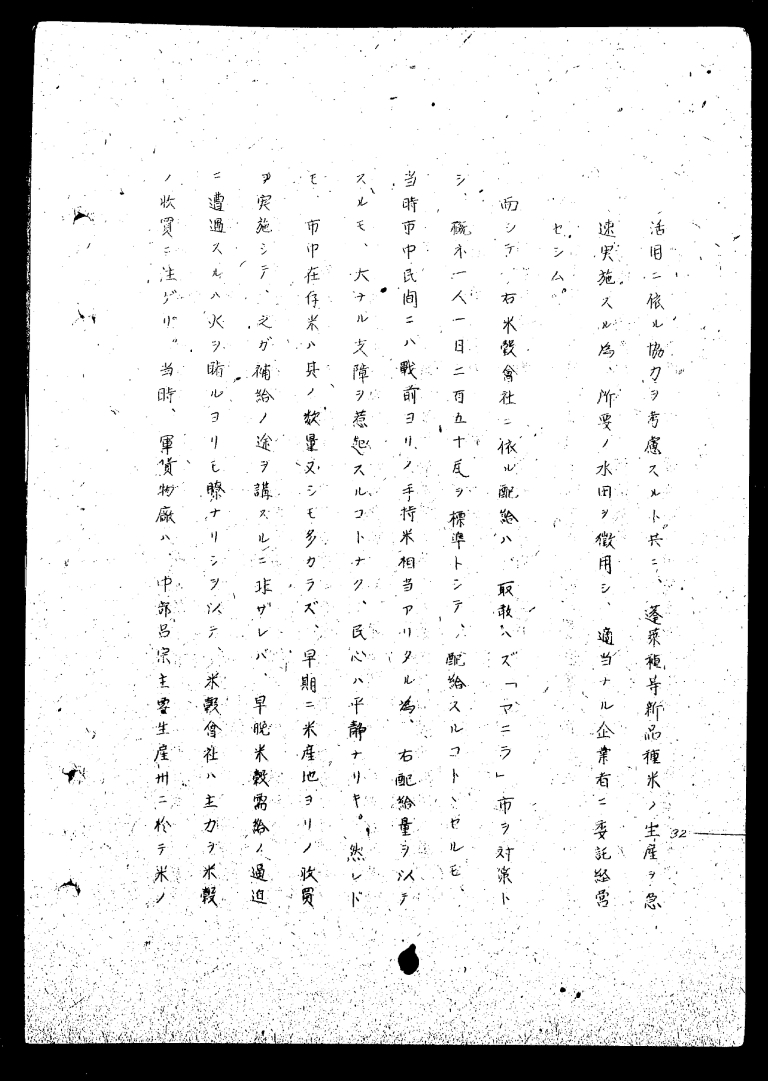 活旧ニ依ル協力ヲ考慮スルト共ニ、蓬萊種等新品種米ノ生産ヲ急
速実施スル為、所要ノ水田ヲ徴用シ、適当ナル企業者ニ委託経営
セシム。
而シテ、右米穀會社ニ依ル配給ハ、取敢ヘズ「マニラ」市ヲ対象ト
シ、概ネ一人一日二百五十瓦ヲ標準トシテ、配給スルコトヽセルモ、
当時市中民間ニハ戰前ヨリノ手持米相当アリタル為、右配給量ヲ以テ
スルモ、大ナル支障ヲ惹起スルコトナク、民心ハ平静ナリキ。然レド
モ、市中在存米ハ其ノ数量必シモ多カラズ、早期ニ米産地ヨリノ收買
ヲ実施シテ、之ガ補給ノ途ヲ講スルニ非ザレバ、早晩米穀需給ノ逼迫
ニ遭遇スルハ火ヲ睹ルヨリモ瞭ナリシヲ以テ、米穀會社ハ主力ヲ米穀
ノ收買ニ注ゲリ。当時、軍貨物廠ハ、中部呂宋主要生産州ニ於テ米ノ
32